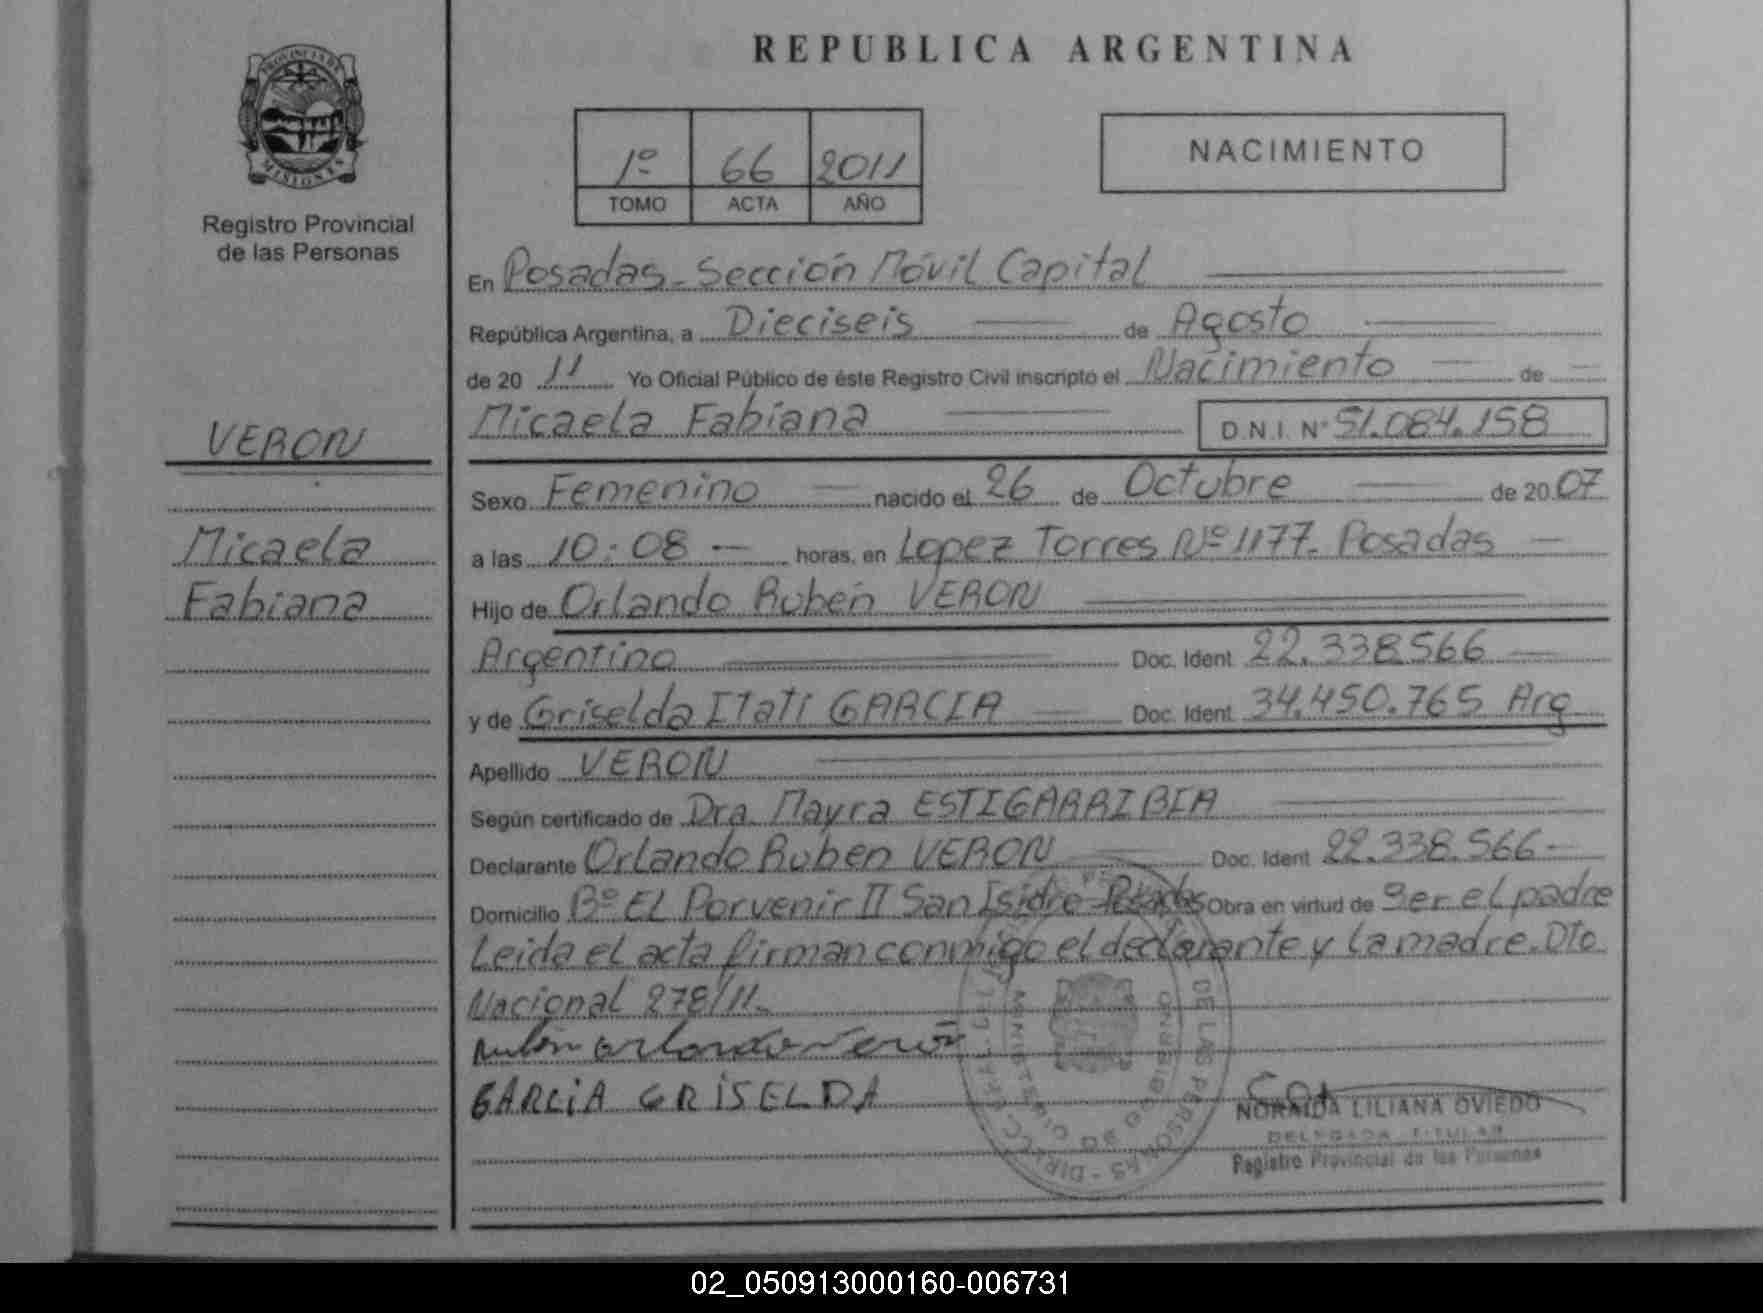 REPUBLICA ARGENTINA
PROVINCIA DE
MISIONES
Registro Provincial
de las Personas
1º 66 2011
TOMO ACTA AÑO
NACIMIENTO
En Posadas - Sección Móvil Capital
República Argentina, a Dieciseis de Agosto
de 20 11 Yo Oficial Público de éste Registro Civil inscripto el Nacimiento de
Micaela Fabiana D.N.I. Nº 51.084.158
VERON
Micaela
Fabiana
Sexo Femenino nacido el 26 de Octubre de 20 07
a las 10:08 horas, en Lopez Torres Nº 1177. Posadas
Hijo de Orlando Rubén VERON
Argentino Doc. Ident. 22.338.566
y de Griselda Itatí GARCIA Doc. Ident. 34.450.765 Arg
Apellido VERON
Según certificado de Dra. Mayra ESTIGARRIBIA
Declarante Orlando Ruben VERON Doc. Ident 22.338.566
Domicilio Bº El Porvenir II San Isidro - Posadas Obra en virtud de Ser el padre
Leida el acta firman conmigo el declarante y la madre. Dto
Nacional 278/11.
Ruben Orlando Veron
GARCIA GRISELDA
NORAIDA LILIANA OVIEDO
DELEGADA TITULAR
Registro Provincial de las Personas
02_050913000160-006731